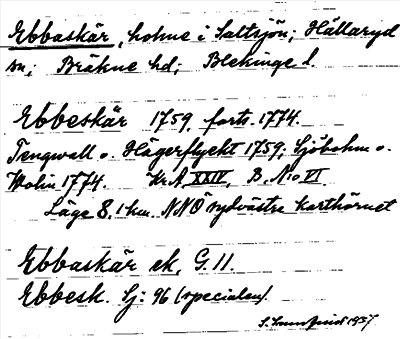 Ebbaskär, holme i Saltsjön; Hällaryd
sn; Bräkne hd; Blekinge l.
Ebbeskär 1759, forts. 1774.
Tengwall o. Hägerflycht 1759; Sjöbohm o.
Wolin 1774. Kr.A. XXIV, B. N:o VI
Läge 8.1 km. NNÖ sydvästra karthörnet
Ebbaskär ek, G. 11.
Ebbesk. Sj: 96 (specialen).
1937